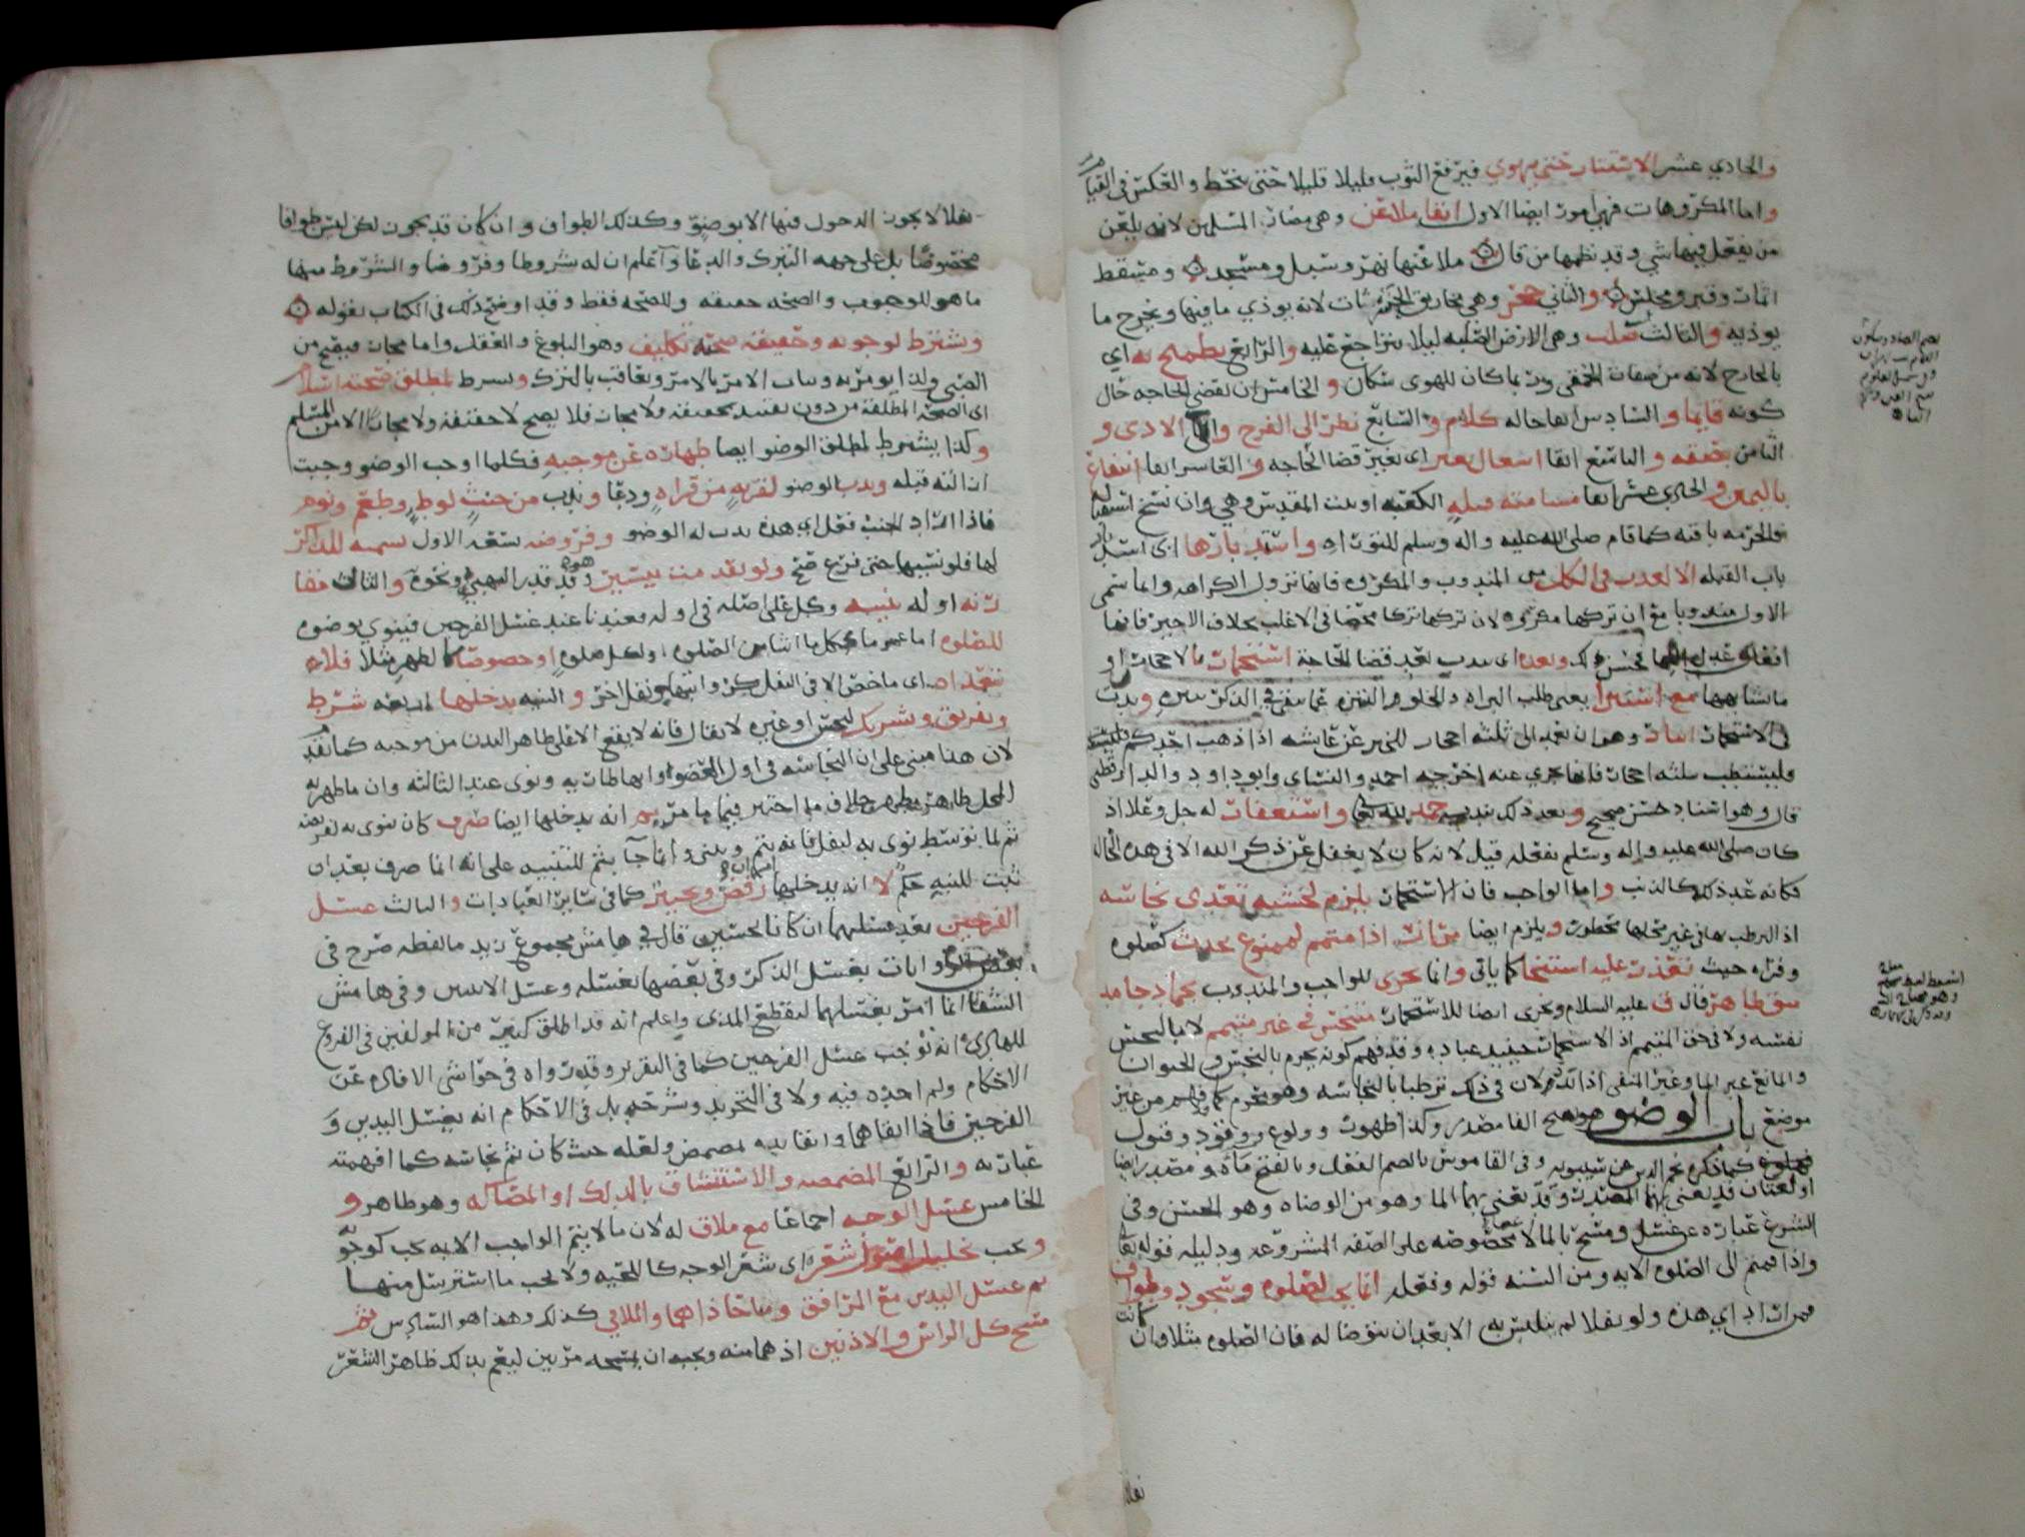 والحادي عشر الاستتار حتى يهوي فيرفع الثوب قليلا قليلا حتى ينحط والعكس في القيام
واما المكروهات فهي امور ايضا الاول اتقا ملاعن وهي مضار المسلمين لانه يلعن
من يفعل فيها شي وقد نظمها من قال ملاعنها نهر وسبل ومسجد ومسقط
اثمار وقبر ومجلس والثاني جحر وهي مخاريق الحشرات لانه يوذي ما فيها ويخرج ما
يوذيه والثالث صلب وهي الارض الصلبه ليلا يتراجع عليه والرابع يطمح به اي
بالخارج لانه من صفات الحمقى وربما كان للهوى سكان والخامس ان يقضي الحاجه حال
كونه قايما والسادس ايضا حاله كلام والسابع نظر الى الفرج والى الاذى و
الثامن بصقه والتاسع اتقا اشتعال بغير اي بغير قضا الحاجه والعاشر ايضا انتفاع
باليمين والحادي عشر ايضا مسامته قبله الكعبه او بيت المقدس وهي وان نسخ استقبالها
فالحرمه باقيه كما قام صلى الله عليه واله وسلم للتوراه واستدبارها اي استدبار
باب القبله الا لعذر في الكل من المندوب والمكروه فانها تزول الكراهه وانما سمي
الاول مندوبا مع ان تركها مكروه لان تركها تركا محضا في الاغلب بخلاف الاخير فانها
وبعده اي يندب بعد قضا الحاجة استجمار بالاحجار او
ما شابهها مع استبرا يعني طلب البراه والخلو والتنزه عما بقي في الذكر بيده وندب
في الاستجمار ايتار وهو ان يعمد الى ثلثه احجار للخبر عن عايشه اذا ذهب احدكم
فليستطب بثلثه احجار فانها تجزي عنه اخرجه احمد والنساي وابو داود والدارقطني
قال وهو اسناد حسن صحيح وبعد ذلك يندب حمد لله تعالى واستغفار له جل وعلا اذ
كان صلى الله عليه واله وسلم يفعله قيل لانه كان لا يغفل عن ذكر الله الا في هذه الحاله
فكانه عد ذلك كالذنب واما الواجب فان الاستجمار يلزم لخشيه تعدي نجاسه
اذ الترطب بها في غير محلها محظور ويلزم ايضا مرات اذا متيمم لممنوع بحدث كصلوه
وقراه حيث تعذر عليه استنجا كما ياتي وانما يجزي للواجب والمندوب بجماد جامد
منق طاهر قال ف عليه السلام ويجزي ايضا للاستجمار متنجس في غير متيمم لا بالنجس
نفسه ولا في حق المتيمم اذ الاستجمار حينيذ عباده وقد فهم كونه يحرم بالنجس والحيوان
والمانع غير الما وغير المنقي اذا لم لان في ذلك ترطبا بالنجاسه وهو محرم كما فهم من غير
موضع باب الوضو بفتح الفا مصدر وكذا طهور وولوع ووقود وقبول
كما ذكره نجم الدين عن سيبويه وفي القاموس بالضم الفعل وبالفتح ماه ومصدر ايضا
او لغتان قد يعنى بهما المصدر وقد يعنى بهما الما وهو من الوضاه وهو الحسن وفي
الشرع عباره عن غسل ومسح بالما لاعضا مخصوصه على الصفه المشروعه ودليله قوله تعالى
واذا قمتم الى الصلوه الايه ومن السنه قوله وفعله انما يجب لصلوه وسجود وطواف
فمن اراد اي هذه ولو نفلا لم يتلبس به الا بعد ان يتوضا له فان الصلوه مثلا وان كانت
نفلا
بضم الصاد وسكون
نفلا لا يجوز الدخول فيها الا بوضو وكذلك الطواف وان كان قد يجوز لكن ليس طوافا
مخصوصا بل على جهه التبرك والدعا واعلم ان له شروطا وفروضا والشروط منها
ما هو للوجوب والصحه حقيقه وللصحه فقط وقد اوضح ذلك في الكتاب بقوله
ويشترط لوجوبه وحقيقه صحته تكليف وهو البلوغ والعقل واما مجازا فيصح من
الصبي ولذا يومر به ويثاب الامر بالامر ويعاقب بالترك ويشترط لمطلق صحته اسلام
اي الصحه المطلقه من دون تقييد بحقيقه ولا مجاز فلا يصح لا حقيقه ولا مجازا الا من المسلم
وكذا يشترط لمطلق الوضو ايضا طهاره عن موجبه فكلما اوجب الوضو وجبت
ازالته قبله وندب الوضو لقربه من قراه ودعا وندب من جنب لوطء وطعم ونوم
فاذا اراد الجنب فعل اي هذه ندب له الوضو وفروضه سته الاول تسميه للذاكر
لها فلو نسيها حتى فرغ صح ولو تقدمت بيسير وقد قدر بالتهيي ونحوه والثاني مقا
رنه اوله بنيه وكل على اصله في اوله فعندنا عند غسل الفرجين فينوي بوضوه
للصلوه اما عموما ككل ما اشا من الصلوه او لكل صلوه او خصوصا كالظهر مثلا فلا
يتعداه اي ما خص الا في النفل كن وانتهى نفل اخر والنيه يدخلها اربعه شرط
وتفريق وتشريك لنجس او غيره لا يقال فانه لا يقع الا على طاهر البدن من موجبه كما تقدم
لان هذا مبني على ان النجاسه في اول العضو او انها طارت به ونوى عند الثالثه وان ما طهر به
المحل طاهر مطهر خلاف ما اختير فيما مر ثم انه يدخلها ايضا صرف كان ينوى به لفريضه
ثم لما توسط نوى به لنفل فانه يتم ويبنى وانما جا بثم للتنبيه على انه انما صرف بعد ان
ثبت للنيه حكم لا انه يدخلها رفض وتخيير كما في ساير العبادات والثالث غسل
الفرجين بعد غسلهما ان كانا نجسين قال في هامش مجموع زيد ما لفظه صرح في
بعض الروايات بغسل الذكر وفي بعضها بغسله وغسل الانثيين وفي هامش
الشفا انما امر بغسلهما ليقطع المذي واعلم انه قد اطلق كثير من المولفين في الفروع
للهادي انه يوجب غسل الفرجين كما في التقرير وقد رواه في حواشي الافاده عن
الاحكام ولم اجده فيه ولا في التجريد وشرحه بل في الاحكام انه يغسل اليدين و
الفرجين فاذا انقاهما وانقا يديه تمضمض ولعله حيث كان ثم نجاسه كما افهمته
عبارته والرابع المضمضه والاستنشاق بالدلك او المصاكه وهو ظاهر و
الخامس غسل الوجه اجماعا مع ملاق له لان ما لا يتم الواجب الا به يجب كوجوبه
ويجب تخليل اصول شعره اي شعر الوجه كاللحيه ولا يجب ما استرسل منها
ثم غسل اليدين مع المرافق وما حاذاهما والملاقي كذلك وهذا هو السادس ثم
مسح كل الراس والاذنين اذ هما منه ويجب ان يمسحه مرتين ليعم بذلك ظاهر الشعر